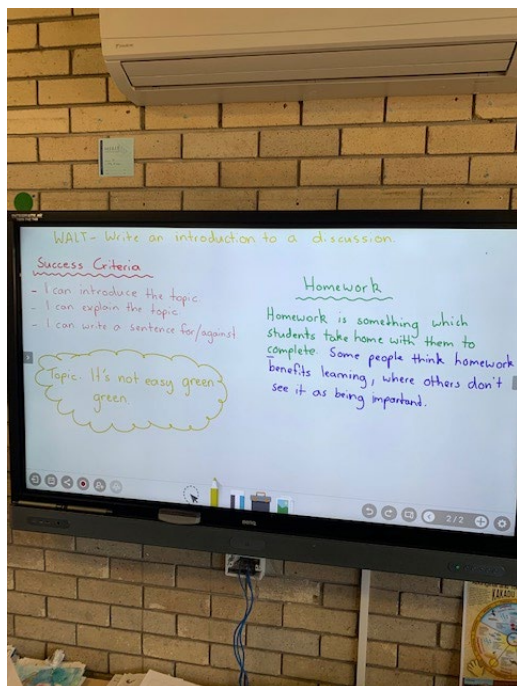 WALT - Write an introduction to a discussion.
Success Criteria
- I can introduce the topic.
- I can explain the topic
- I can write a sentence for/against
Topic. It's not easy green
green.
Homework
Homework is something which
students take home with them to
complete. Some people think homework
benefits learning, where others don't
see it as being important.
2/2
KAKADU